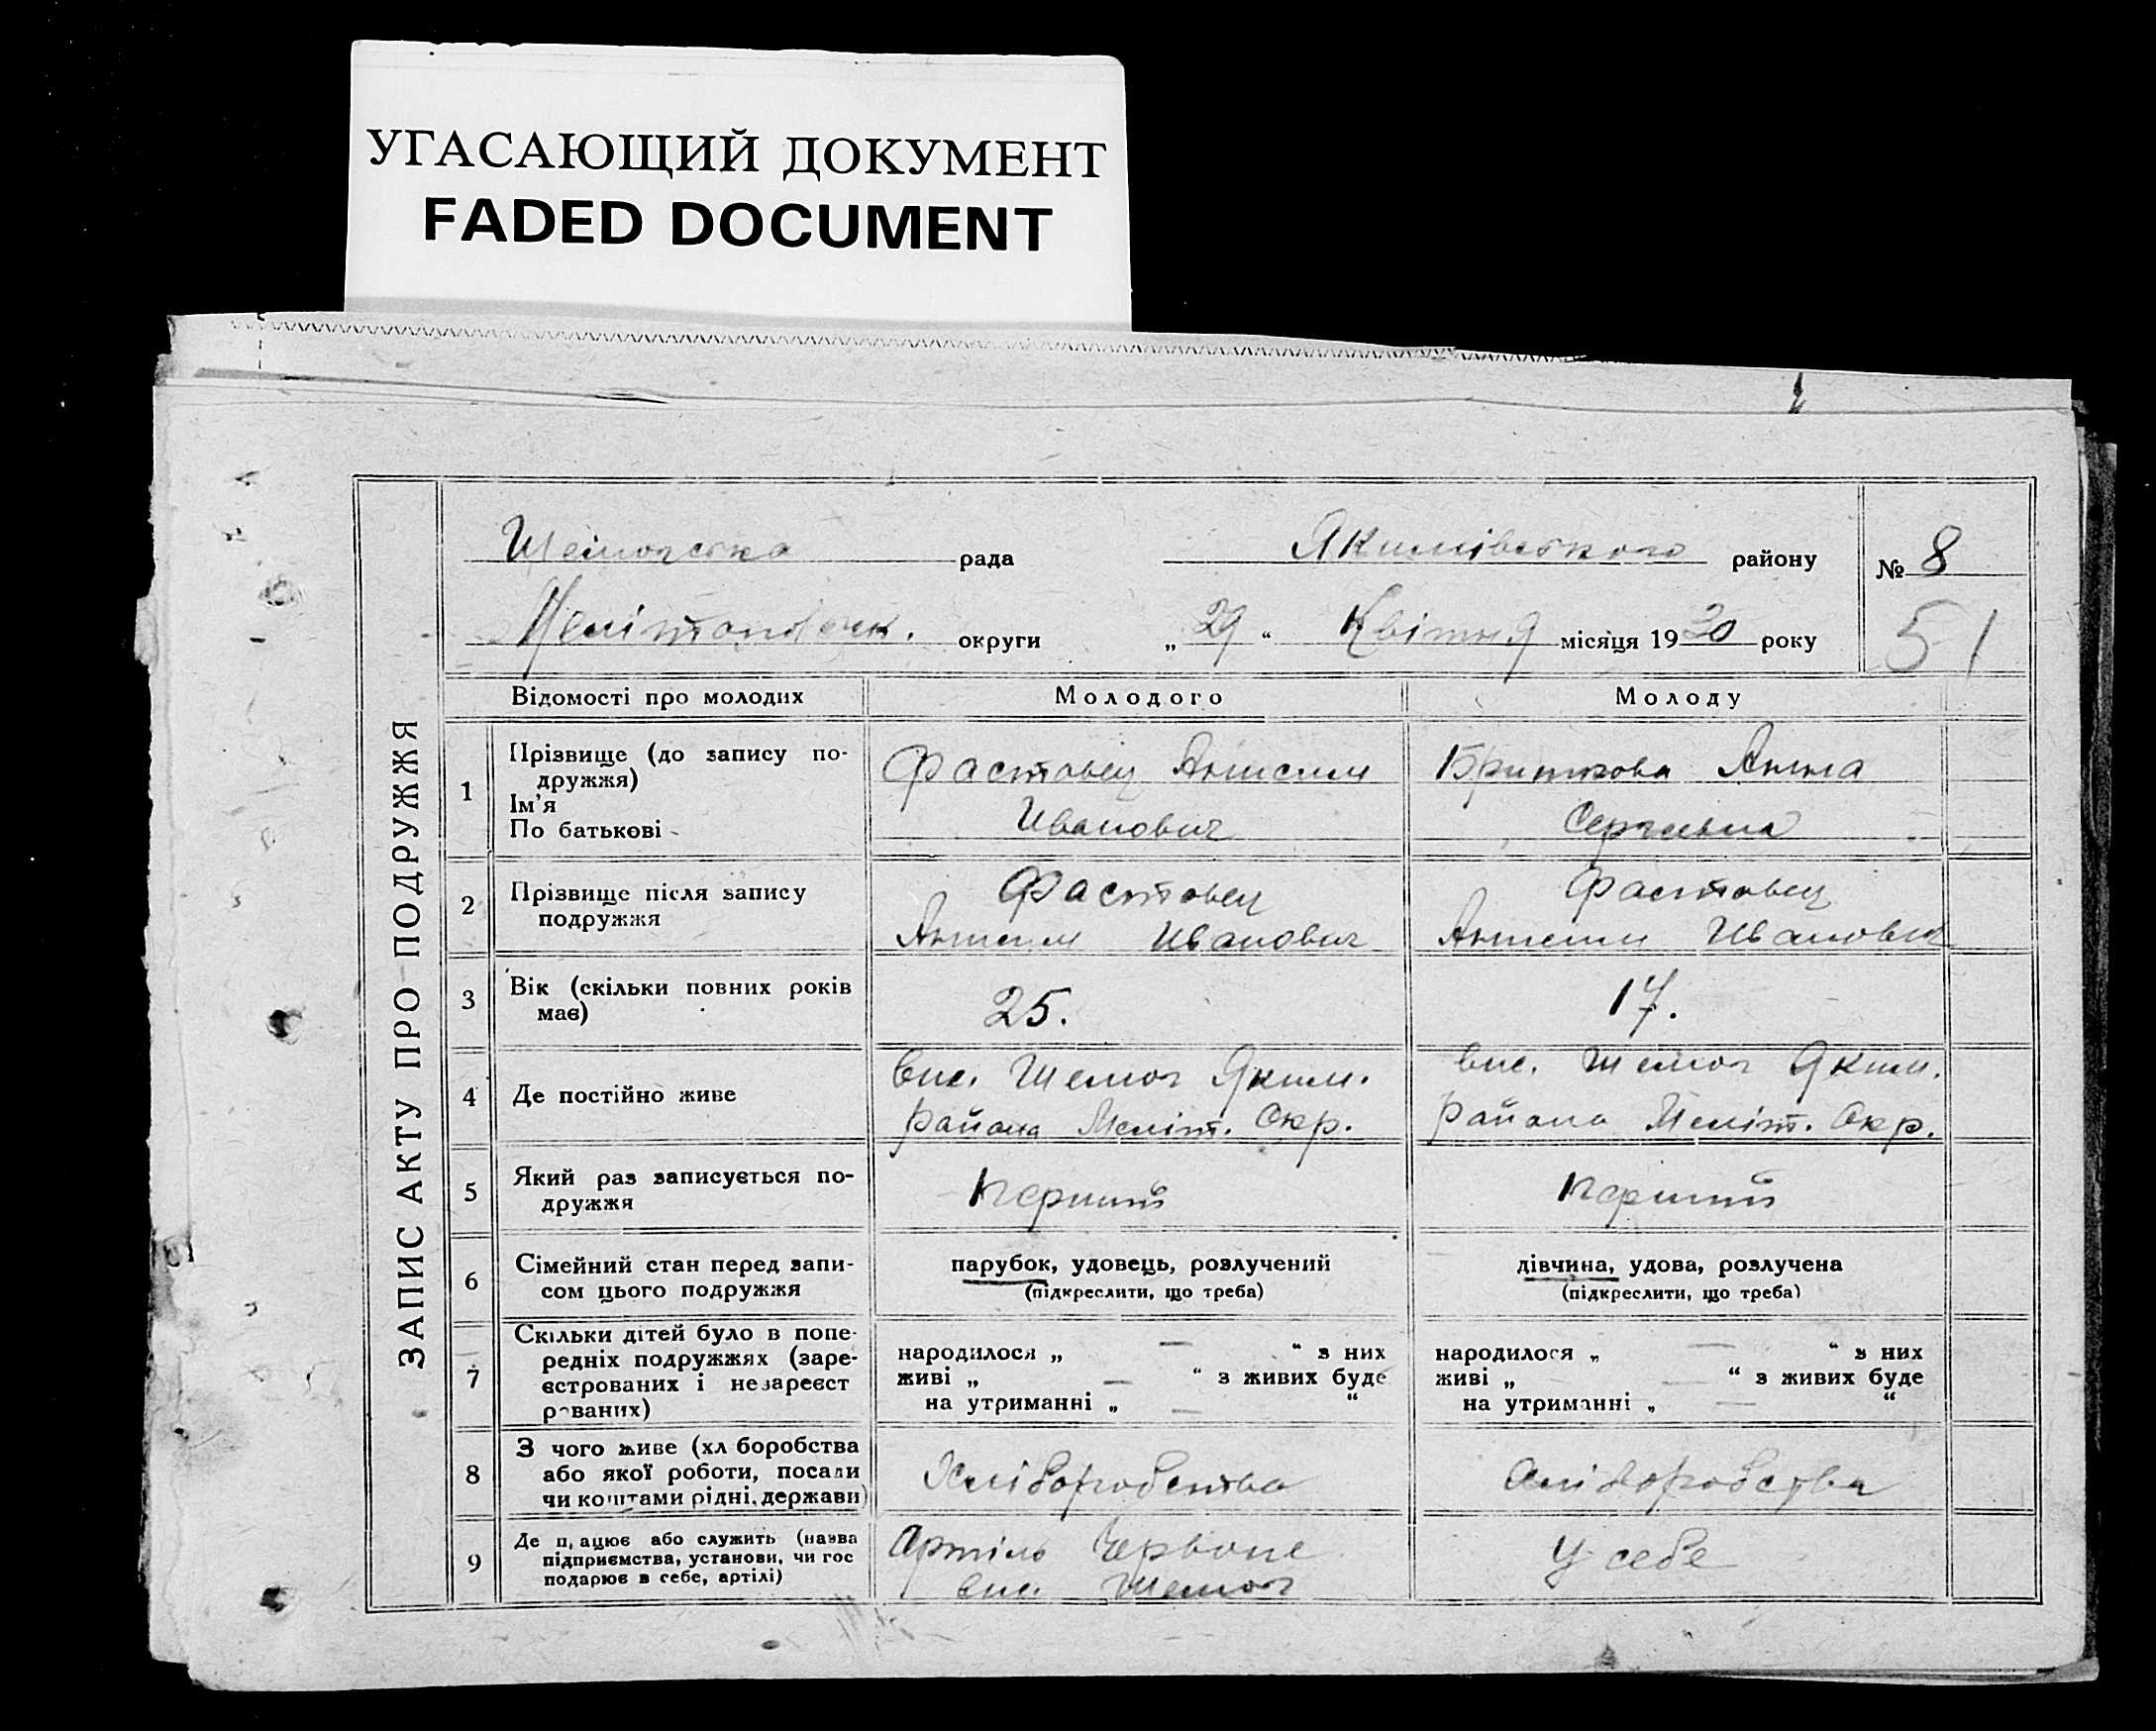 УГАСАЮЩИЙ ДОКУМЕНТ
FADED DOCUMENT
ЗАПИС АКТУ ПРО ПОДРУЖЖЯ
рада Якимівського району № 8
округи „ 29 “ Квітня місяця 1930 року 51
Відомості про молодих Молодого Молоду
1 Прізвище (до запису по-
дружжя)
Ім'я
По батькові
Фастовец
Иванович
Анна
Сергеевна
2 Прізвище після запису
подружжя
Фастовец
Иванович
Фастовец
3 Вік (скільки повних років
має)
25.
17.
4 Де постійно живе
Яким.
района Меліт. Окр.
Яким.
района Меліт. Окр.
5 Який раз записується по-
дружжя
Перший
Перший
6 Сімейний стан перед запи-
сом цього подружжя
парубок, удовець, розлучений
(підкреслити, що треба)
дівчина, удова, розлучена
(підкреслити, що треба)
7 Скільки дітей було в попе-
редніх подружжях (заре-
єстрованих і незареєст
рованих)
народилося „ — “ з них
живі „ — “ з живих буде
на утриманні „ — “
народилося „ — “ з них
живі „ — “ з живих буде
на утриманні „ — “
8 З чого живе (хл боробства
або якої роботи, посади
чи коштами рідні, держави)
Хліборобства
Хліборобства
9 Де працює або служить (назва
підприємства, установи, чи гос
подарює в себе, артілі)
Артіль Червоне
У себе